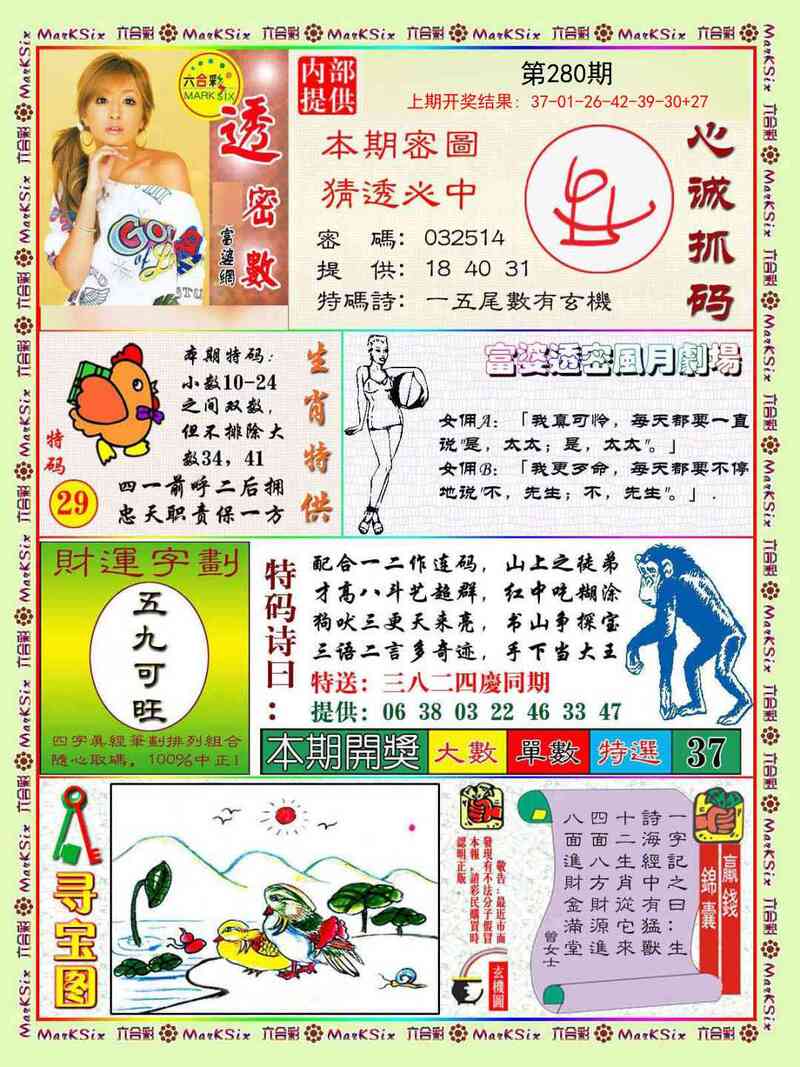 MarKSix 六合彩 MarKSix 六合彩 MarKSix 六合彩 MarKSix 六合彩 MarKSix 六合彩 MarKSix
六合彩
MARK SIX
透密數
富婆網
内部
提供
第280期
上期开奖结果：37-01-26-42-39-30+27
本期密圖
猜透必中
密 碼：032514
提 供：18 40 31
特碼詩：一五尾數有玄機
心诚抓码
特码
29
本期特码：
小数10-24
之间双数，
但不排除大
数34，41
四一前呼二后拥
忠天职责保一方
生肖特供
富婆透密風月劇場
女佣A：「我真可怜，每天都要一直
说"是，太太；是，太太"。」
女佣B：「我更歹命，每天都要不停
地说"不，先生；不，先生"。」.
財運字劃
五九可旺
四字真經筆劃排列組合
隨心取碼，100%中正！
特码诗曰：
配合一二作连码，山上之徒弟
才高八斗艺超群，红中吃糊涂
狗吠三更天未亮，书山争探宝
三语二言多奇迹，手下当大王
特送：三八二四慶同期
提供：06 38 03 22 46 33 47
本期開獎 大數 單數 特選 37
寻宝图
敬告：最近市面
發現有不法分子假冒
本報，請彩民購買時
認明正版
玄機圖
一字記之曰：生
詩海經中有猛獸
十二生肖從它來
四面八方財源進
八面進財金滿堂
曾女士
贏錢
錦囊
MarKSix 六合彩 MarKSix 六合彩 MarKSix 六合彩 MarKSix 六合彩 MarKSix 六合彩 MarKSix